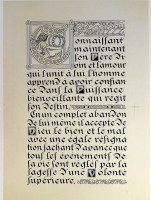 Connaissant
maintenant
son Père di-
vin et l'amour
qui l'unit à lui l'homme
apprend à avoir confian-
ce Dans la Puissance
bienveillante qui régit
son destin.
En un complet aban don
de lui même il accepte de
Dieu le bien et le mal
avec une égale résigna-
tion sachant d'avance que
tous les événements de
sa vie sont réglés par la
sagesse d'une Volonté
supérieure.